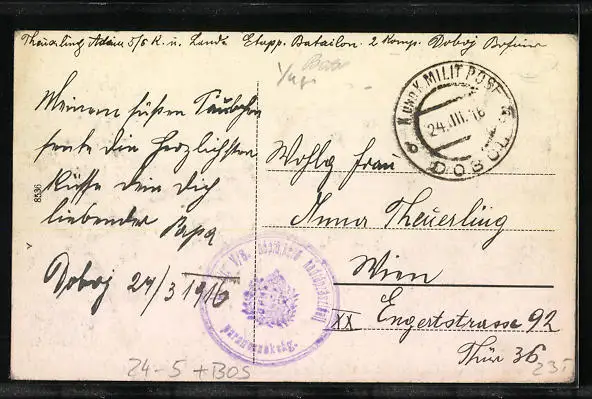 Theuerling Adam 5/6 K. u. Lands Etapp. Batailon. 2 Komp. Doboj Bosnien
Meinem süßen Täubchen
sende die Herzlichsten
Küsse dein dich
liebender Papa
Doboj 24/3 1916
K. UND K. MILIT. POST
24.III.16
DOBOJ
Wohlg Frau
Anna Theuerling
Wien
XX Engertstrasse 92
Thür 36
8536
24-5 + BOS
235